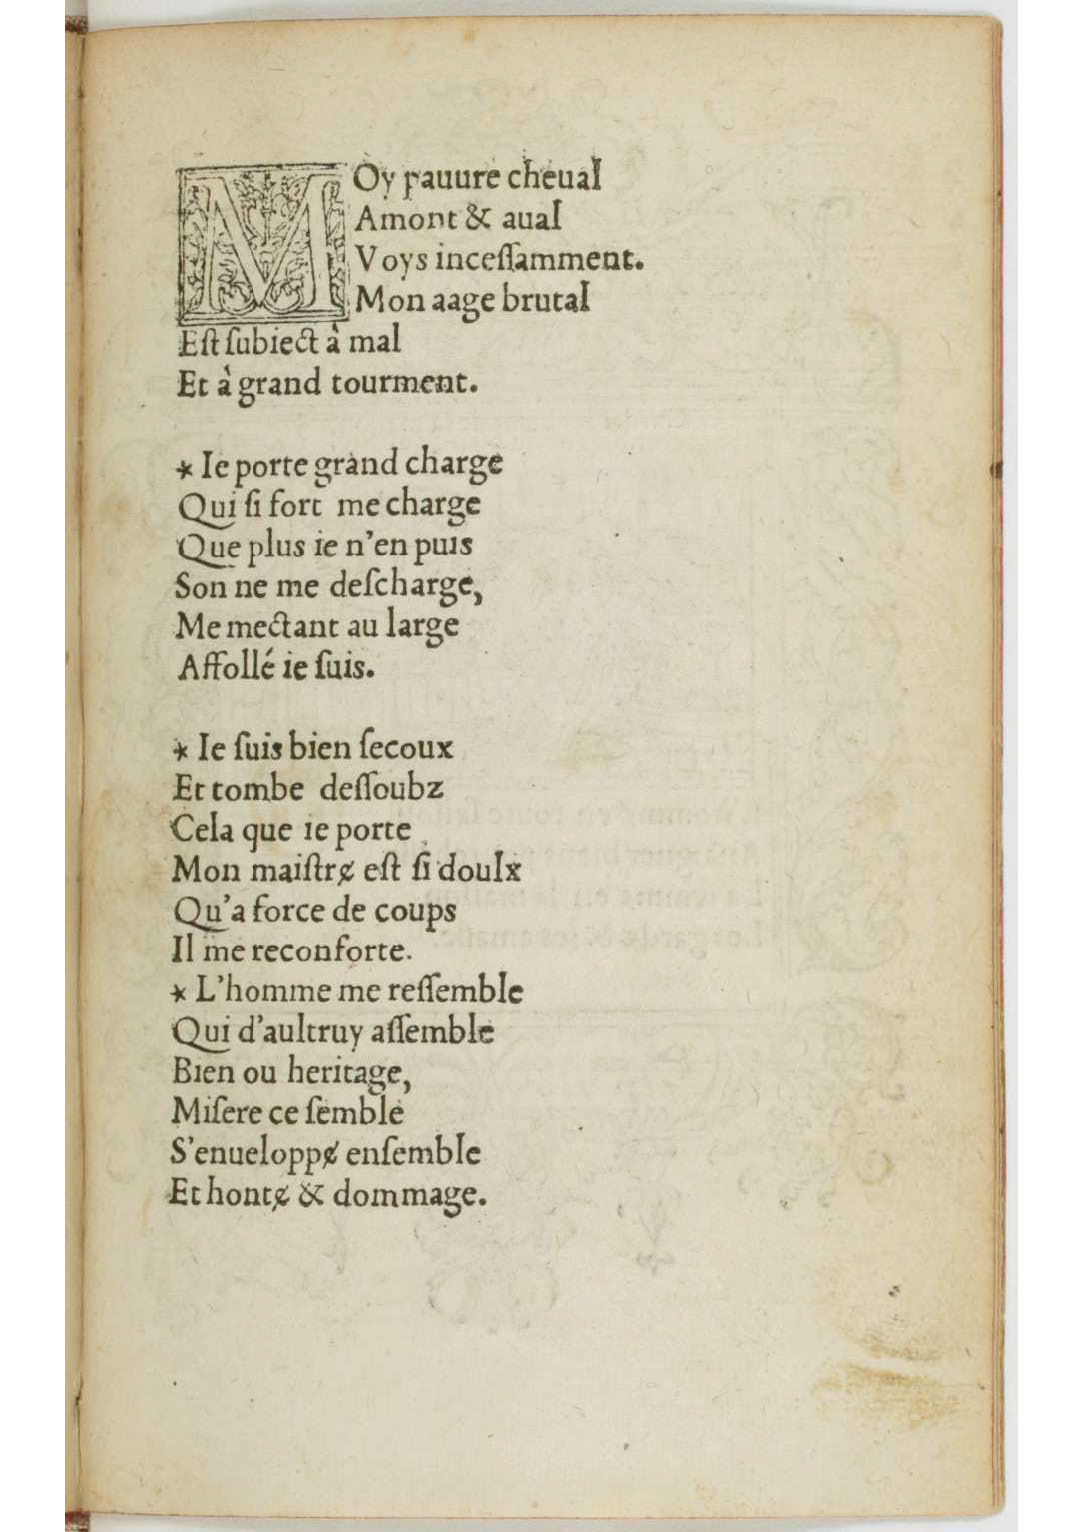 MOy pauure cheual
Amont & aual
Voys inceſſamment.
Mon aage brutal
Eſt ſubiect à mal
Et à grand tourment.
* Ie porte grand charge
Qui ſi fort me charge
Que plus ie n'en puis
Son ne me deſcharge,
Me mectant au large
Affollé ie ſuis.
* Ie ſuis bien ſecoux
Et tombe deſſoubz
Cela que ie porte
Mon maiſtrɇ eſt ſi doulx
Qu'a force de coups
Il me reconforte.
* L'homme me reſſemble
Qui d'aultruy aſſemble
Bien ou heritage,
Miſere ce ſemble
S'enueloppɇ enſemble
Et hontɇ & dommage.